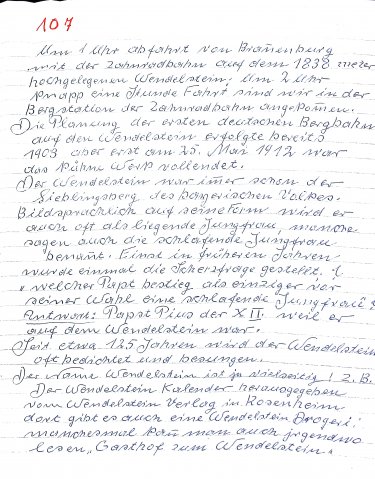 107
Um 1 Uhr abfahrt von Brañenburg
mit der Zahnradbahn auf dem 1838 meter
hochgelegenen Wendelstein; Um 2 Uhr
knapp eine Stunde Fahrt sind wir in der
Bergstation der Zahnradbahn angekom̄en.
Die Planung der ersten deutschen Bergbahn
auf den Wendelstein erfolgte bereits
1903 aber erst am 25. Mai 1912 war
das kühne Werk vollendet.
Der Wendelstein war im̄er schon der
Lieblingsberg des bayerischen Volkes.
Bildsprachlich auf seine Form wird er
auch oft als liegende Jungfrau, manche
sagen auch die schlafende Jungfrau
benañt. Einst in früheren Jahren
wurde einmal die Scherzfrage gestellt.
„welcher Papst bestieg als einziger vor
seiner Wahl eine schlafende Jungfrau?
Antwort: Papst Pius der XII weil er
auf dem Wendelstein war.
Seit etwa 125 Jahren wird der Wendelstein
oft bedichtet und besungen.
Der Name Wendelstein ist ja vielseitig! z.B.
Der Wendelstein Kalender herausgegeben
vom Wendelstein Verlag in Rosenheim
dort gibt es auch eine Wendelstein Drogeri;
manchesmal kañ man auch irgendwo
lesen „Gasthof zum Wendelstein"